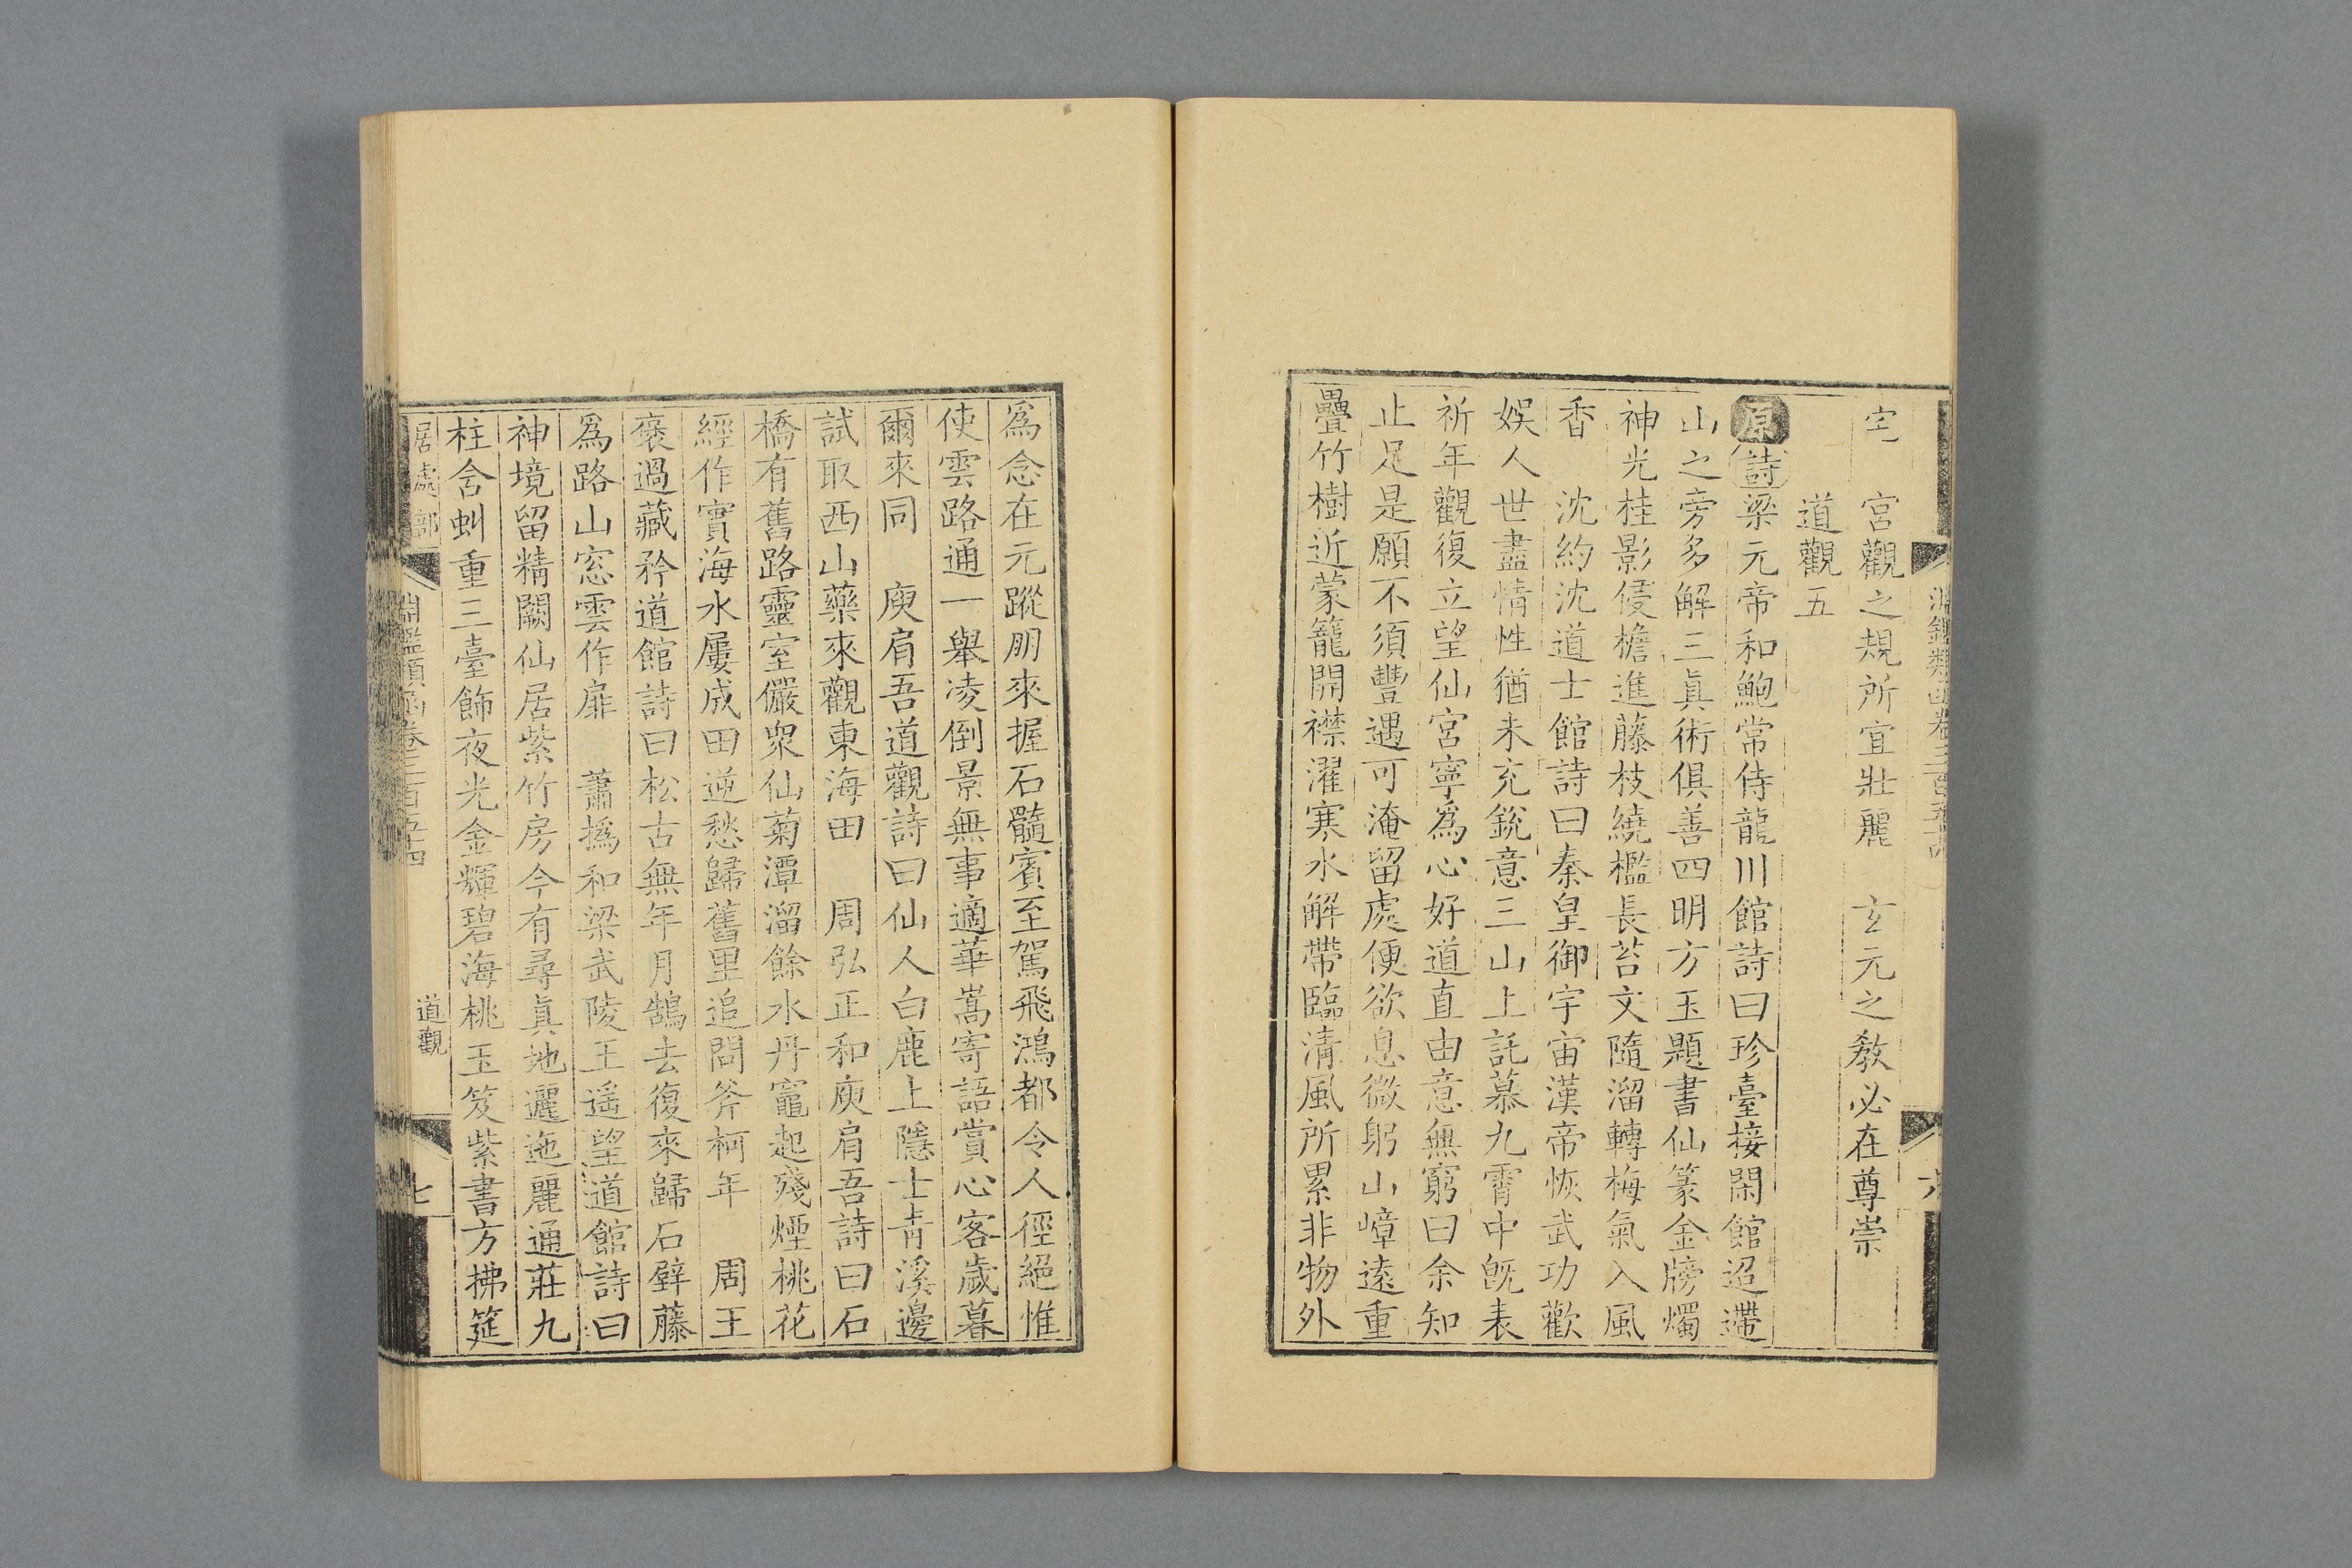 宅　宮觀之規所宜壯麗　玄元之教必在尊崇
道觀五
原詩梁元帝和鮑常侍龍川館詩曰珍臺接閑館迢遰
山之旁多解三眞術俱善四明方玉題書仙篆金牓燭
神光桂影侵檐進藤枝繞檻長苔文隨溜轉梅氣入風
香　沈約沈道士館詩曰秦皇御宇宙漢帝恢武功歡
娛人世盡情性猶未充銳意三山上託慕九霄中旣表
祈年觀復立望仙宮寧爲心好道直由意無窮曰余知
止足是願不須豐遇可淹留處便欲息微躬山嶂遠重
疊竹樹近蒙籠開襟濯寒水解帶臨淸風所累非物外
爲念在元蹤朋來握石髓賓至駕飛鴻都令人徑絕惟
使雲路通一舉凌倒景無事適華嵩寄語賞心客歲暮
爾來同　庾肩吾道觀詩曰仙人白鹿上隱士靑溪邊
試取西山藥來觀東海田　周弘正和庾肩吾詩曰石
橋有舊路靈室儼衆仙菊潭溜餘水丹竈起殘煙桃花
經作實海水屢成田逆愁歸舊里追問斧柯年　周王
褒過藏矜道館詩曰松古無年月鵠去復來歸石壁藤
爲路山窓雲作扉　蕭撝和梁武陵王遥望道館詩曰
神境留精闕仙居紫竹房今有尋眞地邐迤麗通莊九
柱含虯重三臺飾夜光金輝碧海桃玉笈紫書方拂筵
居處部　淵鑑類函卷三百五十四　道觀　七